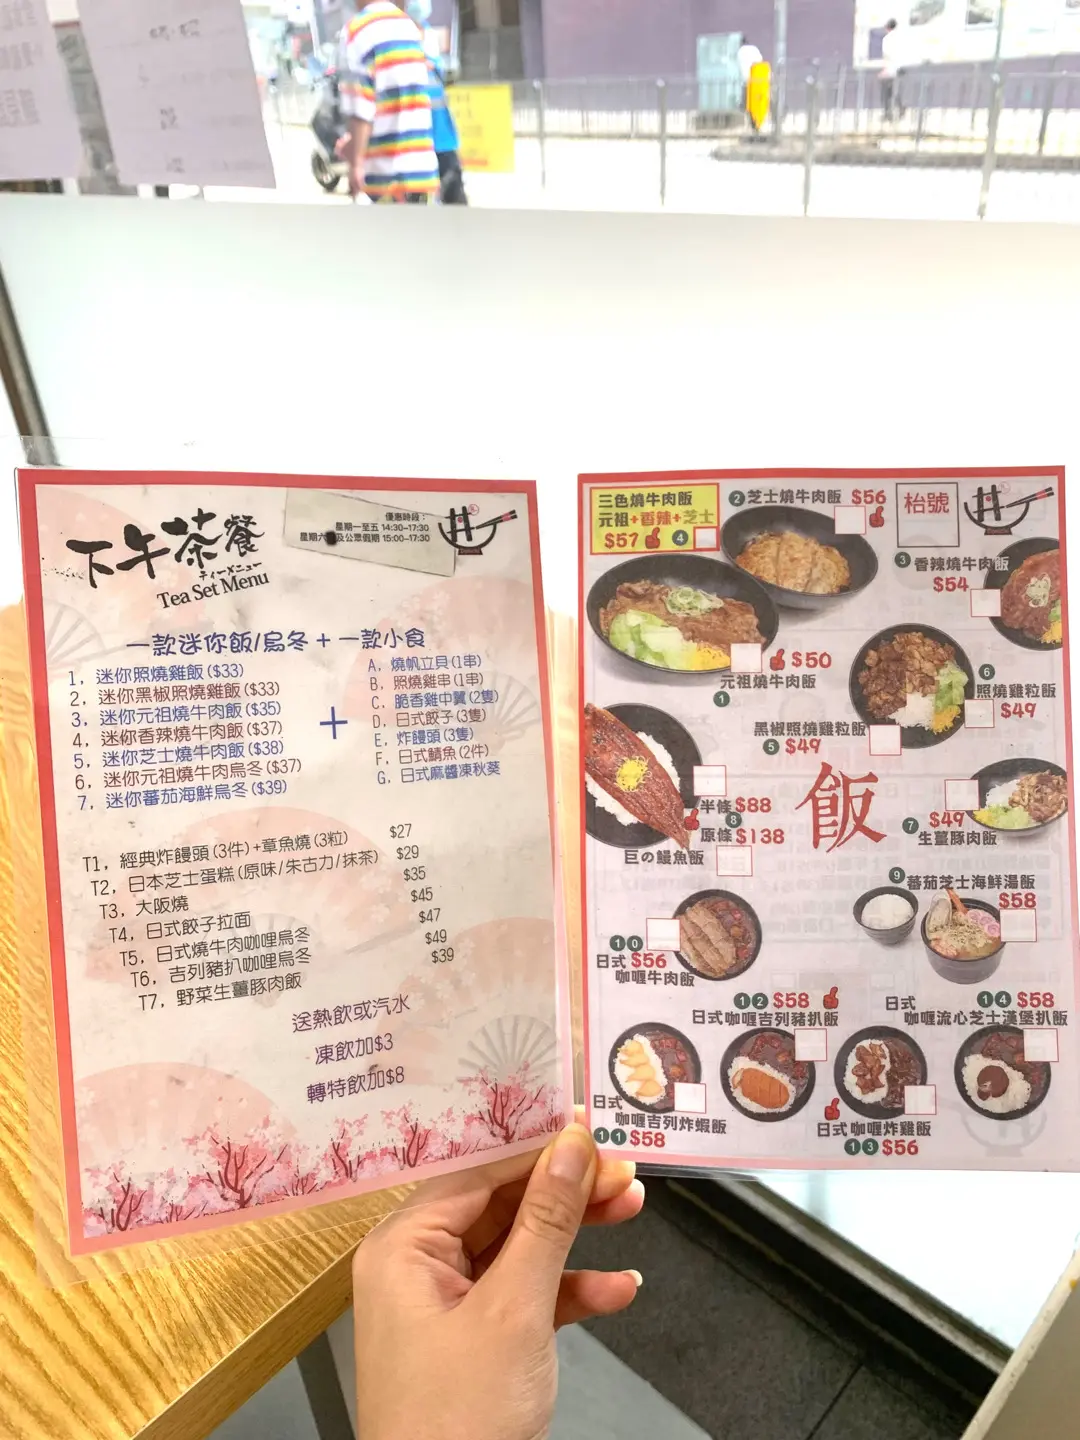 下午茶餐
ティーメニュー
Tea Set Menu
優惠時段：
星期一至五 14:30-17:30
星期六 及公眾假期 15:00-17:30
一款迷你飯/烏冬 + 一款小食
1, 迷你照燒雞飯 ($33)
2, 迷你黑椒照燒雞飯 ($33)
3, 迷你元祖燒牛肉飯 ($35)
4, 迷你香辣燒牛肉飯 ($37)
5, 迷你芝士燒牛肉飯 ($38)
6, 迷你元祖燒牛肉烏冬 ($37)
7, 迷你蕃茄海鮮烏冬 ($39)
+
A, 燒帆立貝 (1串)
B, 照燒雞串 (1串)
C, 脆香雞中翼 (2隻)
D, 日式餃子 (3隻)
E, 炸饅頭 (3隻)
F, 日式鯖魚 (2件)
G, 日式麻醬凍秋葵
T1, 經典炸饅頭 (3件) +章魚燒 (3粒) $27
T2, 日本芝士蛋糕 (原味/朱古力/抹茶) $29
T3, 大阪燒 $35
T4, 日式餃子拉面 $45
T5, 日式燒牛肉咖哩烏冬 $47
T6, 吉列豬扒咖哩烏冬 $49
T7, 野菜生薑豚肉飯 $39
送熱飲或汽水
凍飲加$3
轉特飲加$8
三色燒牛肉飯
元祖+香辣+芝士
$57 4
2 芝士燒牛肉飯 $56
枱號
3 香辣燒牛肉飯
$54
$50
元祖燒牛肉飯
1
6
照燒雞粒飯
$49
黑椒照燒雞粒飯
5 $49
飯
半條 $88
8
原條 $138
巨の鰻魚飯
$49
7 生薑豚肉飯
9 蕃茄芝士海鮮湯飯
$58
10
日式 $56
咖喱牛肉飯
12 $58
日式咖喱吉列豬扒飯
日式 14 $58
咖喱流心芝士漢堡扒飯
日式
咖喱吉列炸蝦飯
11 $58
日式咖喱炸雞飯
13 $56